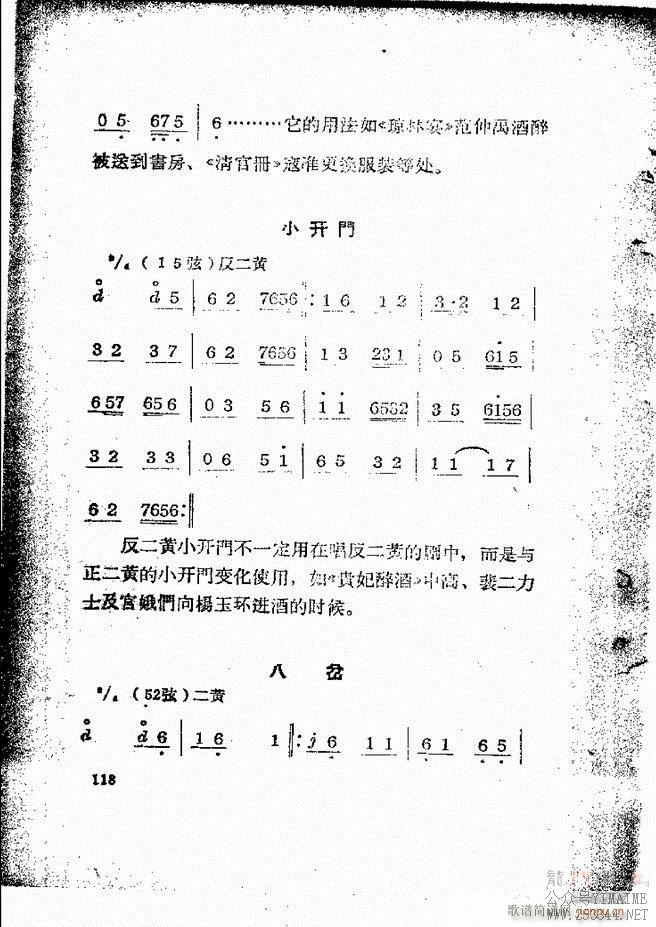 0 5 675 | 6 ……… 它的用法如《琼林宴》范仲禹酒醉
被送到書房、《清官冊》寇准更換服装等处。
小开門
2/4 (15弦)反二黄
d d 5 | 6 2 7656 |: 1 6 1 2 | 3·2 1 2 |
3 2 3 7 | 6 2 7656 | 1 3 231 | 0 5 615 |
657 656 | 0 3 5 6 | i i 6532 | 3 5 6156 |
3 2 3 3 | 0 6 5 i | 6 5 3 2 | 1 1 1 7 |
6 2 7656 :||
反二黄小开門不一定用在唱反二黄的剧中，而是与
正二黄的小开門变化使用，如《貴妃醉酒》中高、裴二力
士及宫娥們向楊玉环进酒的时候。
八岔
2/4 (52弦)二黄
d d 6 | 1 6 1 ||: j 6 1 1 | 6 1 6 5 |
118
歌谱简谱网
公众号YIMAIME